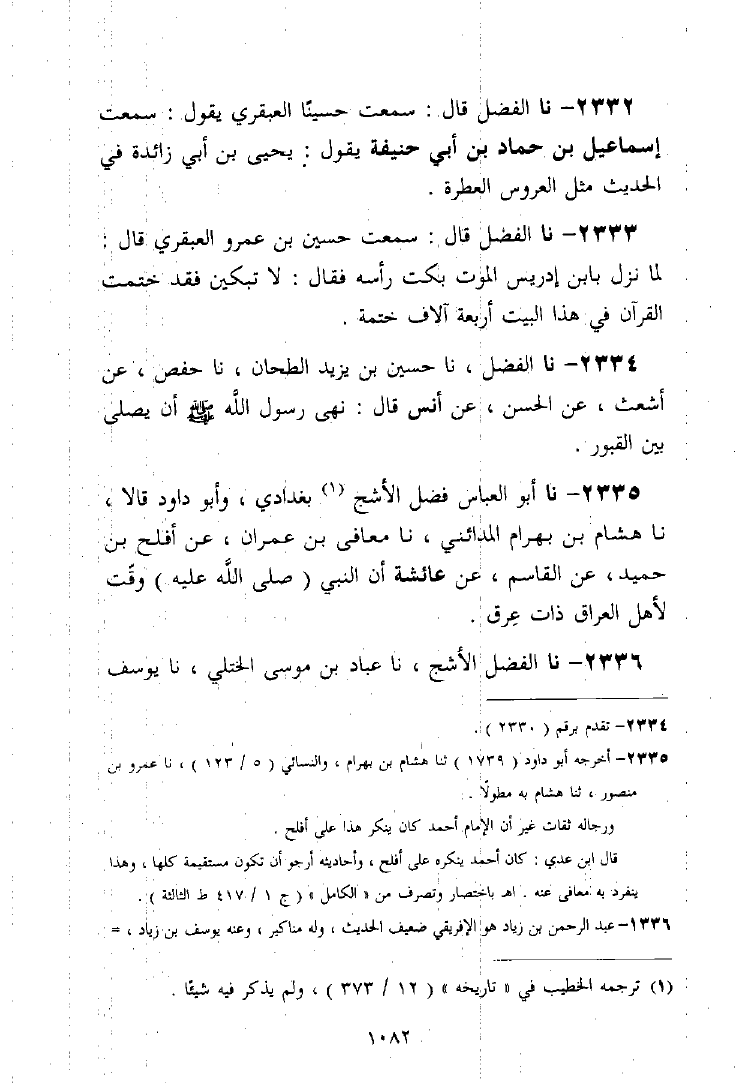 ٢٣٣٢- نا الفضل قال : سمعت حسينًا العبقري يقول : سمعت
إسماعيل بن حماد بن أبي حنيفة يقول : يحيى بن أبي زائدة في
الحديث مثل العروس العطرة .
٢٣٣٣- نا الفضل قال : سمعت حسين بن عمرو العبقري قال :
لما نزل بابن إدريس الموت بكت رأسه فقال : لا تبكين فقد ختمت
القرآن في هذا البيت أربعة آلاف ختمة .
٢٣٣٤- نا الفضل ، نا حسين بن يزيد الطحان ، نا حفص ، عن
أشعث ، عن الحسن ، عن أنس قال : نهى رسول اللَّه ﷺ أن يصلى
بين القبور .
٢٣٣٥- نا أبو العباس فضل الأشج (١) بغدادي ، وأبو داود قالا ،
نا هشام بن بهرام المدائني ، نا معافى بن عمران ، عن أفلح بن
حميد، عن القاسم ، عن عائشة أن النبي ( صلى اللَّه عليه ) وقّت
لأهل العراق ذات عِرق .
٢٣٣٦- نا الفضل الأشج ، نا عباد بن موسى الختلي ، نا يوسف
٢٣٣٤- تقدم برقم ( ٢٣٣٠ ) .
٢٣٣٥- أخرجه أبو داود ( ١٧٣٩ ) ثنا هشام بن بهرام ، والنسائي ( ٥ / ١٢٣ ) ، نا عمرو بن
منصور ، ثنا هشام به مطولًا .
ورجاله ثقات غير أن الإمام أحمد كان ينكر هذا على أفلح .
قال ابن عدي : كان أحمد ينكره على أفلح ، وأحاديثه أرجو أن تكون مستقيمة كلها ، وهذا
ينفرد به معافى عنه . اهـ باختصار وتصرف من « الكامل » ( ج ١ / ٤١٧ ط الثالثة ) .
١٣٣٦- عبد الرحمن بن زياد هو الإفريقي ضعيف الحديث ، وله مناكير ، وعنه يوسف بن زياد ، =
(١) ترجمه الخطيب في « تاريخه » ( ١٢ / ٣٧٣ ) ، ولم يذكر فيه شيئًا .
١٠٨٢